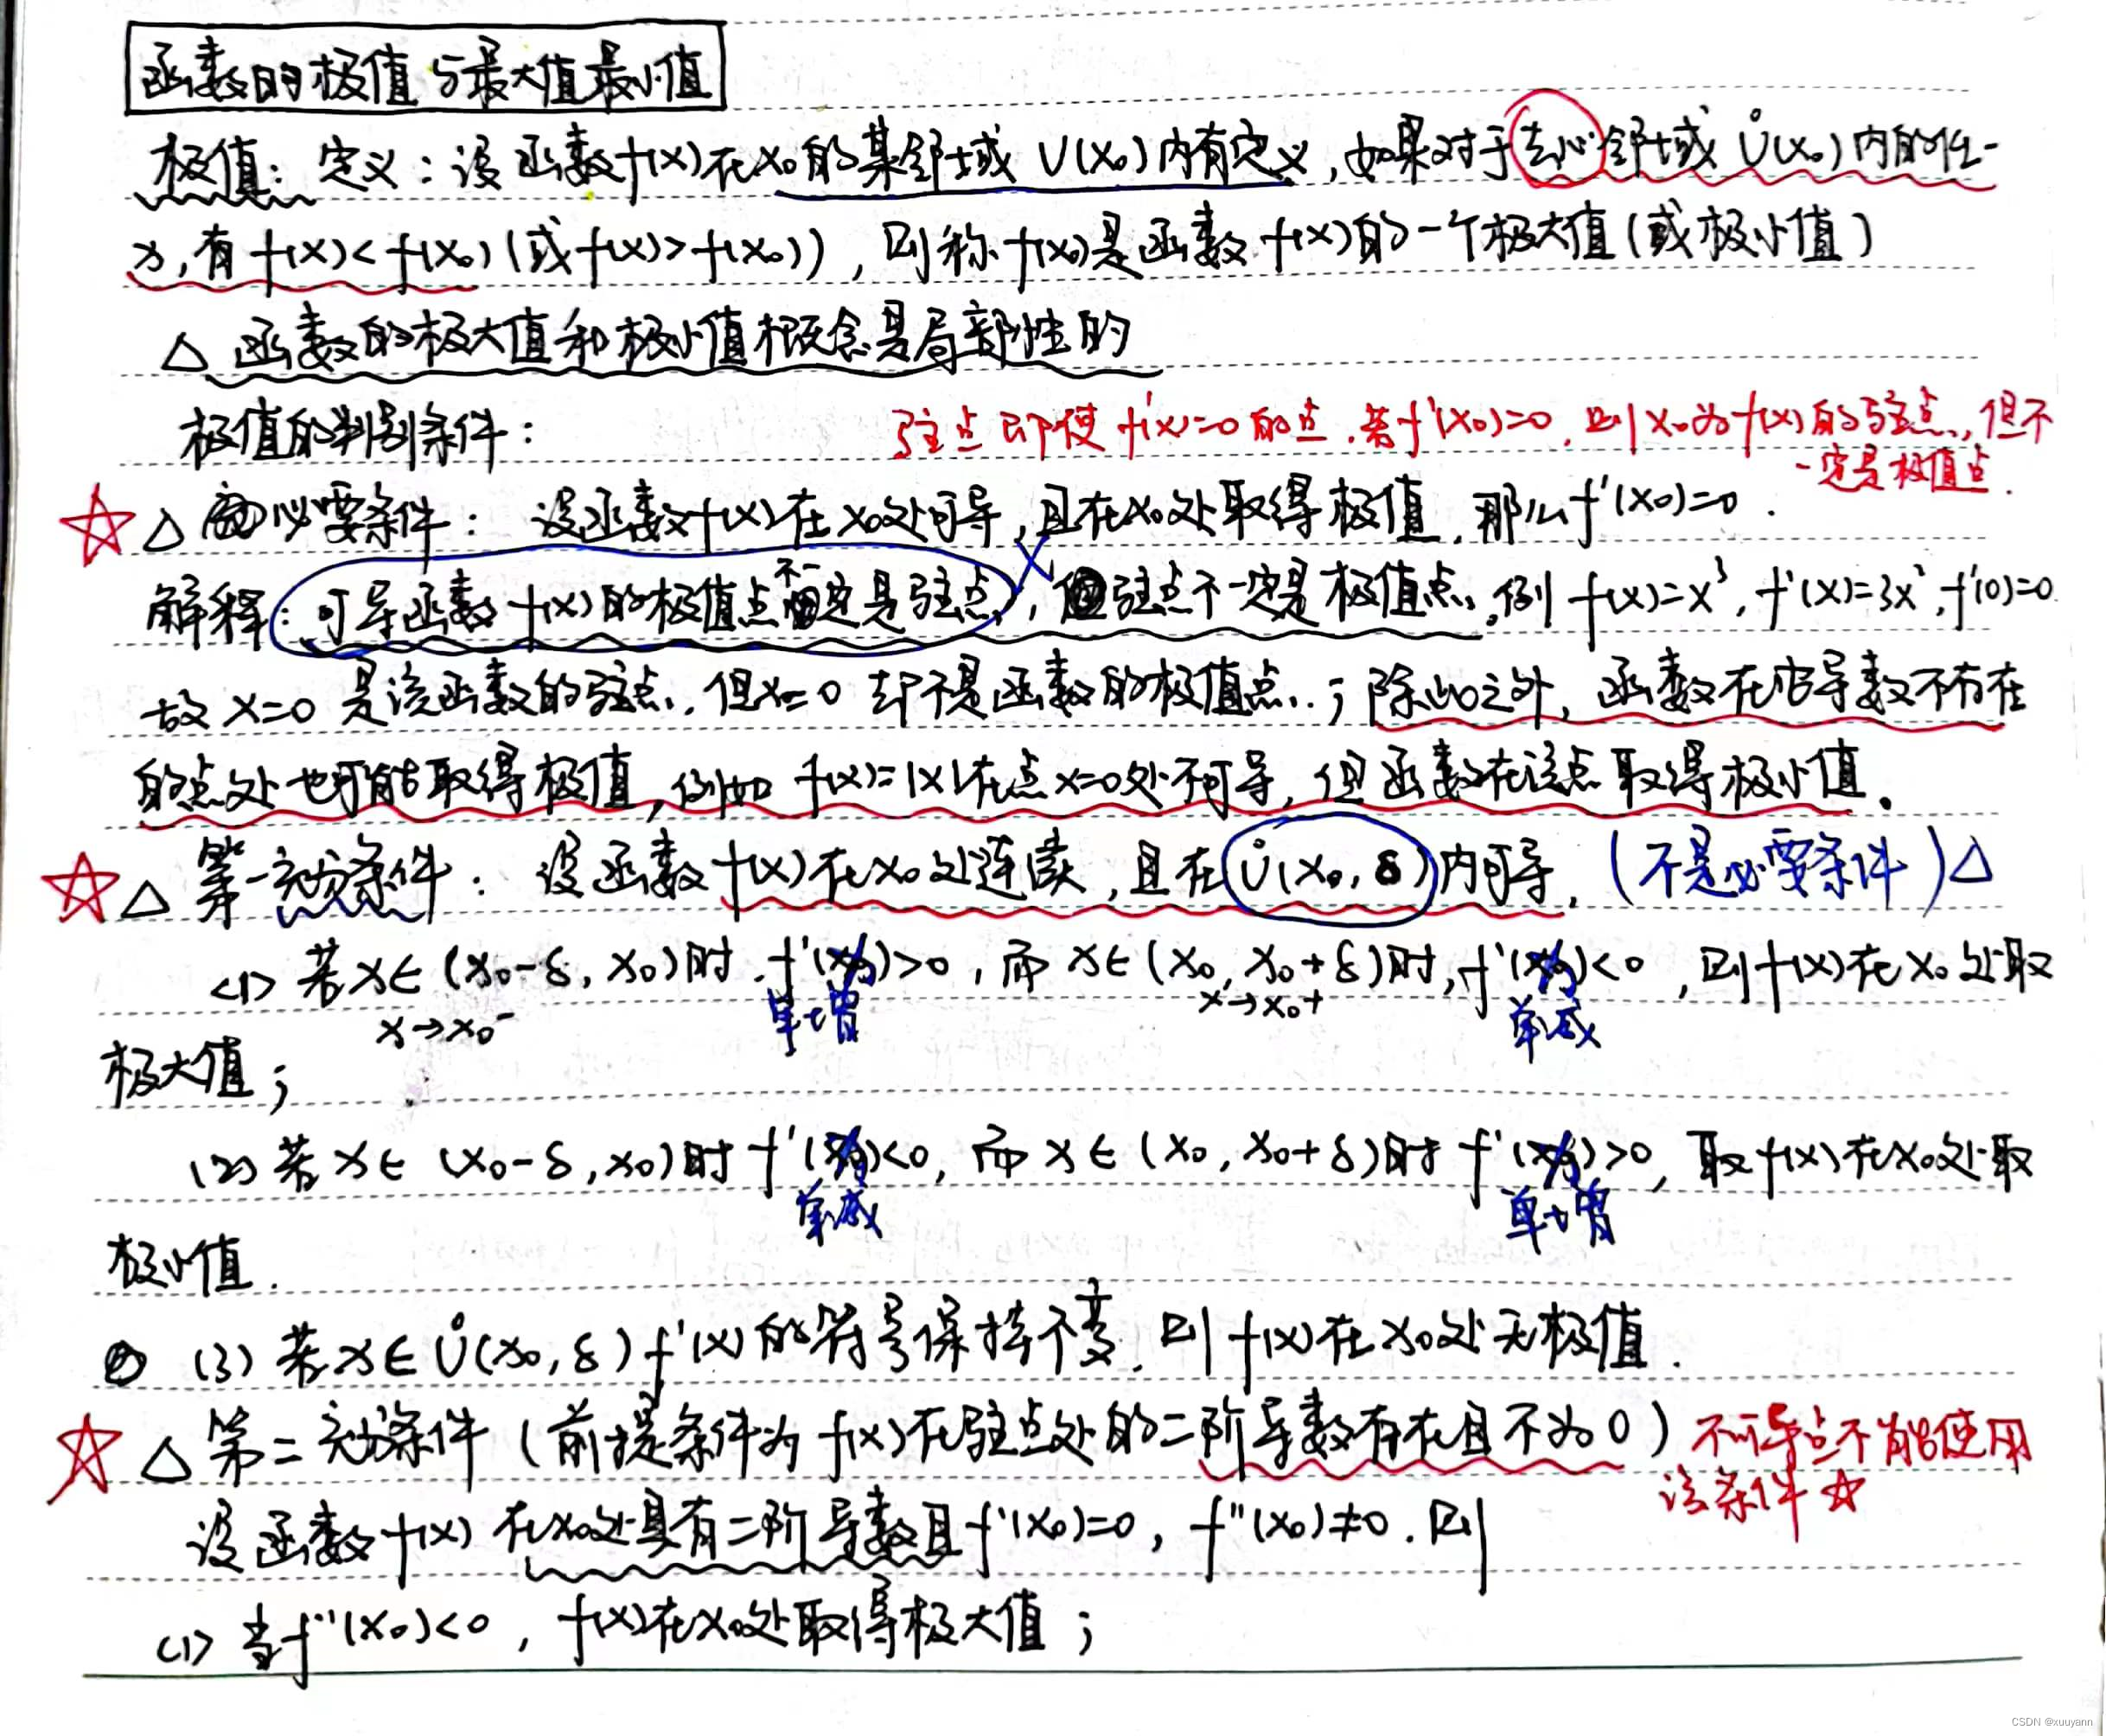 函数的极值与最大值最小值
极值：定义：设函数f(x)在x₀的某邻域 U(x₀)内有定义，如果对于去心邻域 Ů(x₀)内的任一
x，有 f(x)<f(x₀)(或f(x)>f(x₀))，则称f(x₀)是函数f(x)的一个极大值(或极小值)
△ 函数的极大值和极小值概念是局部性的
极值的判别条件：
驻点即使f'(x)=0的点.若f'(x₀)=0，则x₀为f(x)的驻点，但不
一定是极值点.
☆ △ 必要条件：设函数f(x)在x₀处可导，且在x₀处取得极值，那么f'(x₀)=0.
解释：可导函数f(x)的极值点不一定是驻点，×但驻点不一定是极值点.例f(x)=x³, f'(x)=3x², f'(0)=0
故x=0是该函数的驻点，但x=0却不是函数的极值点；除此之外，函数在导数不存在
的点处也可能取得极值，例如 f(x)=|x|在点x=0处不可导，但函数在该点取得极小值。
☆ △ 第一充分条件：设函数f(x)在x₀处连续，且在Ů(x₀,δ)内可导.(不是必要条件)△
<1> 若x∈(x₀-δ, x₀)时，f'(x)>0，而x∈(x₀, x₀+δ)时，f'(x)<0，则f(x)在x₀处取
x→x₀⁻ 单增 x→x₀⁺ 单减
极大值；
(2) 若x∈(x₀-δ, x₀)时f'(x)<0，而x∈(x₀, x₀+δ)时f'(x)>0，取f(x)在x₀处取
单减 单增
极小值.
(3) 若x∈Ů(x₀,δ) f'(x)的符号保持不变，则f(x)在x₀处无极值.
☆ △ 第二充分条件(前提条件为f(x)在驻点处的二阶导数存在且不为0) 不可导点不能使用
该条件☆
设函数f(x)在x₀处具有二阶导数且f'(x₀)=0, f''(x₀)≠0.则
<1> 当f''(x₀)<0，f(x)在x₀处取得极大值；
CSDN @xuuyann